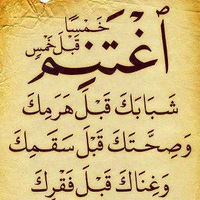 ٱغْتَنِمْ خَمْسًا قَبْلَ خَمْسٍ
شَبَابَكَ قَبْلَ هَرَمِكَ
وَصِحَّتَكَ قَبْلَ سَقَمِكَ
وَغِنَاكَ قَبْلَ فَقْرِكَ